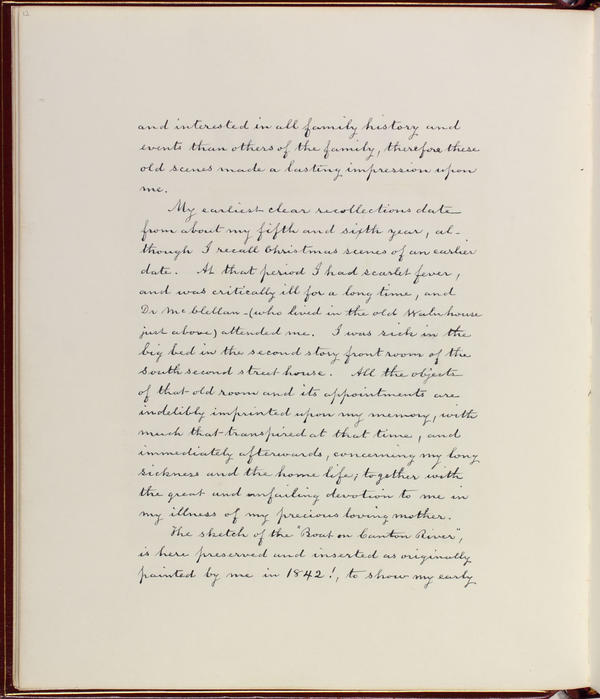 and interested in all family history and
events than others of the family, therefore these
old scenes made a lasting impression upon
me.
My earliest clear recollections date
from about my fifth and sixth year, al-
though I recall Christmas scenes of an earlier
date. At that period I had scarlet fever,
and was critically ill for a long time, and
Dr McClellan - (who lived in the old Waln house
just above) attended me. I was sick in the
big bed in the second story front room of the
South second street house. All the objects
of that old room and its appointments are
indelibly imprinted upon my memory, with
much that transpired at that time, and
immediately afterwards, concerning my long
sickness and the home life; together with
the great and unfailing devotion to me in
my illness of my precious loving mother.
The sketch of the "Boat on Canton River",
is here preserved and inserted as originally
painted by me in 1842!, to show my early